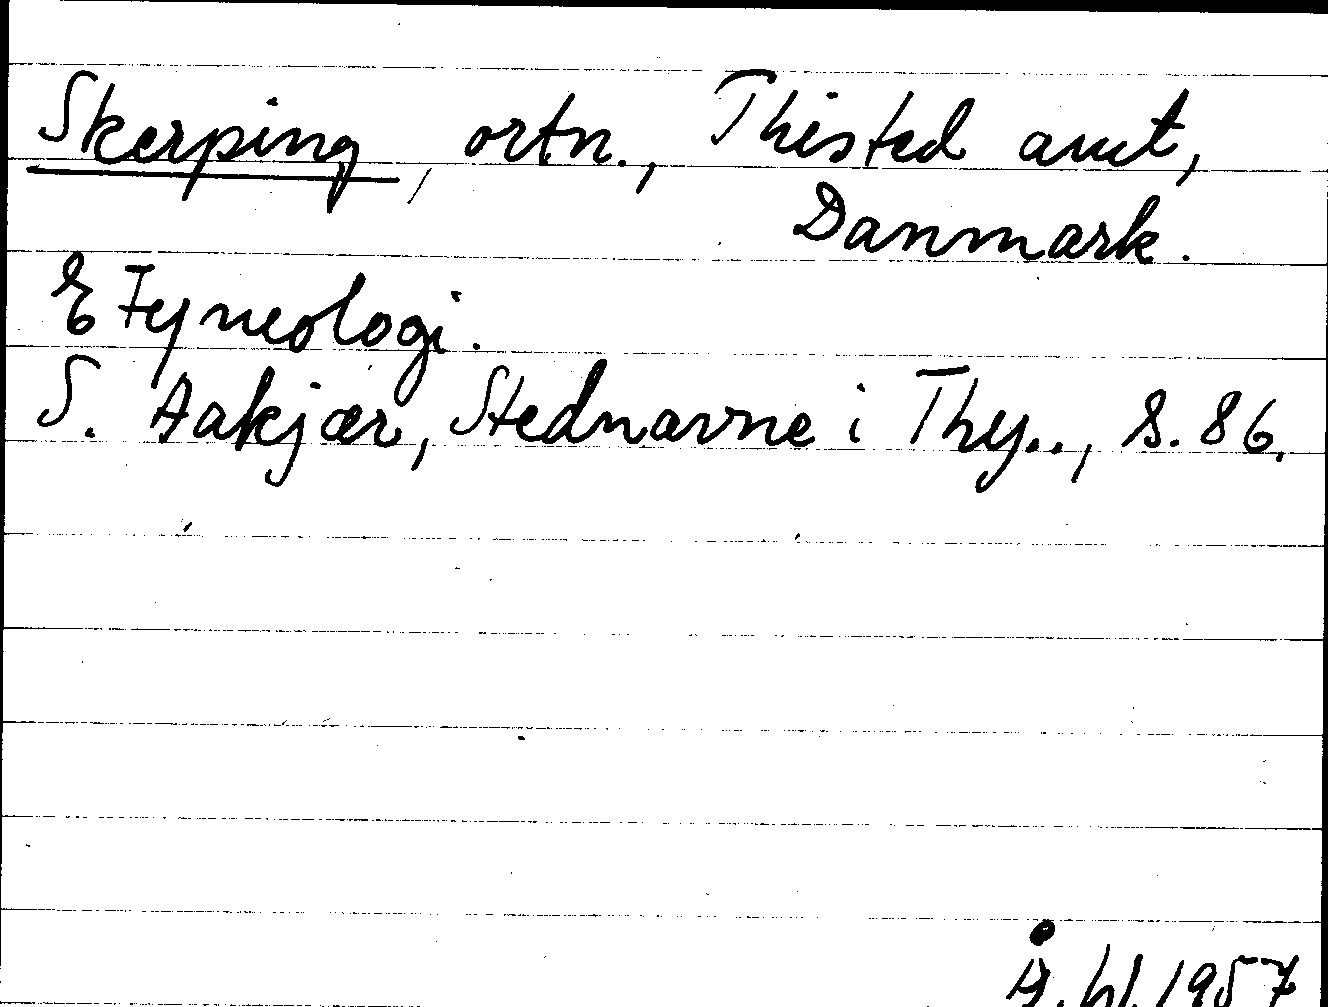 Skerping, ortn., Thisted amt,
Danmark.
Etymologi.
S. Aakjær, Stednavne i Thy.., s. 86.
1957